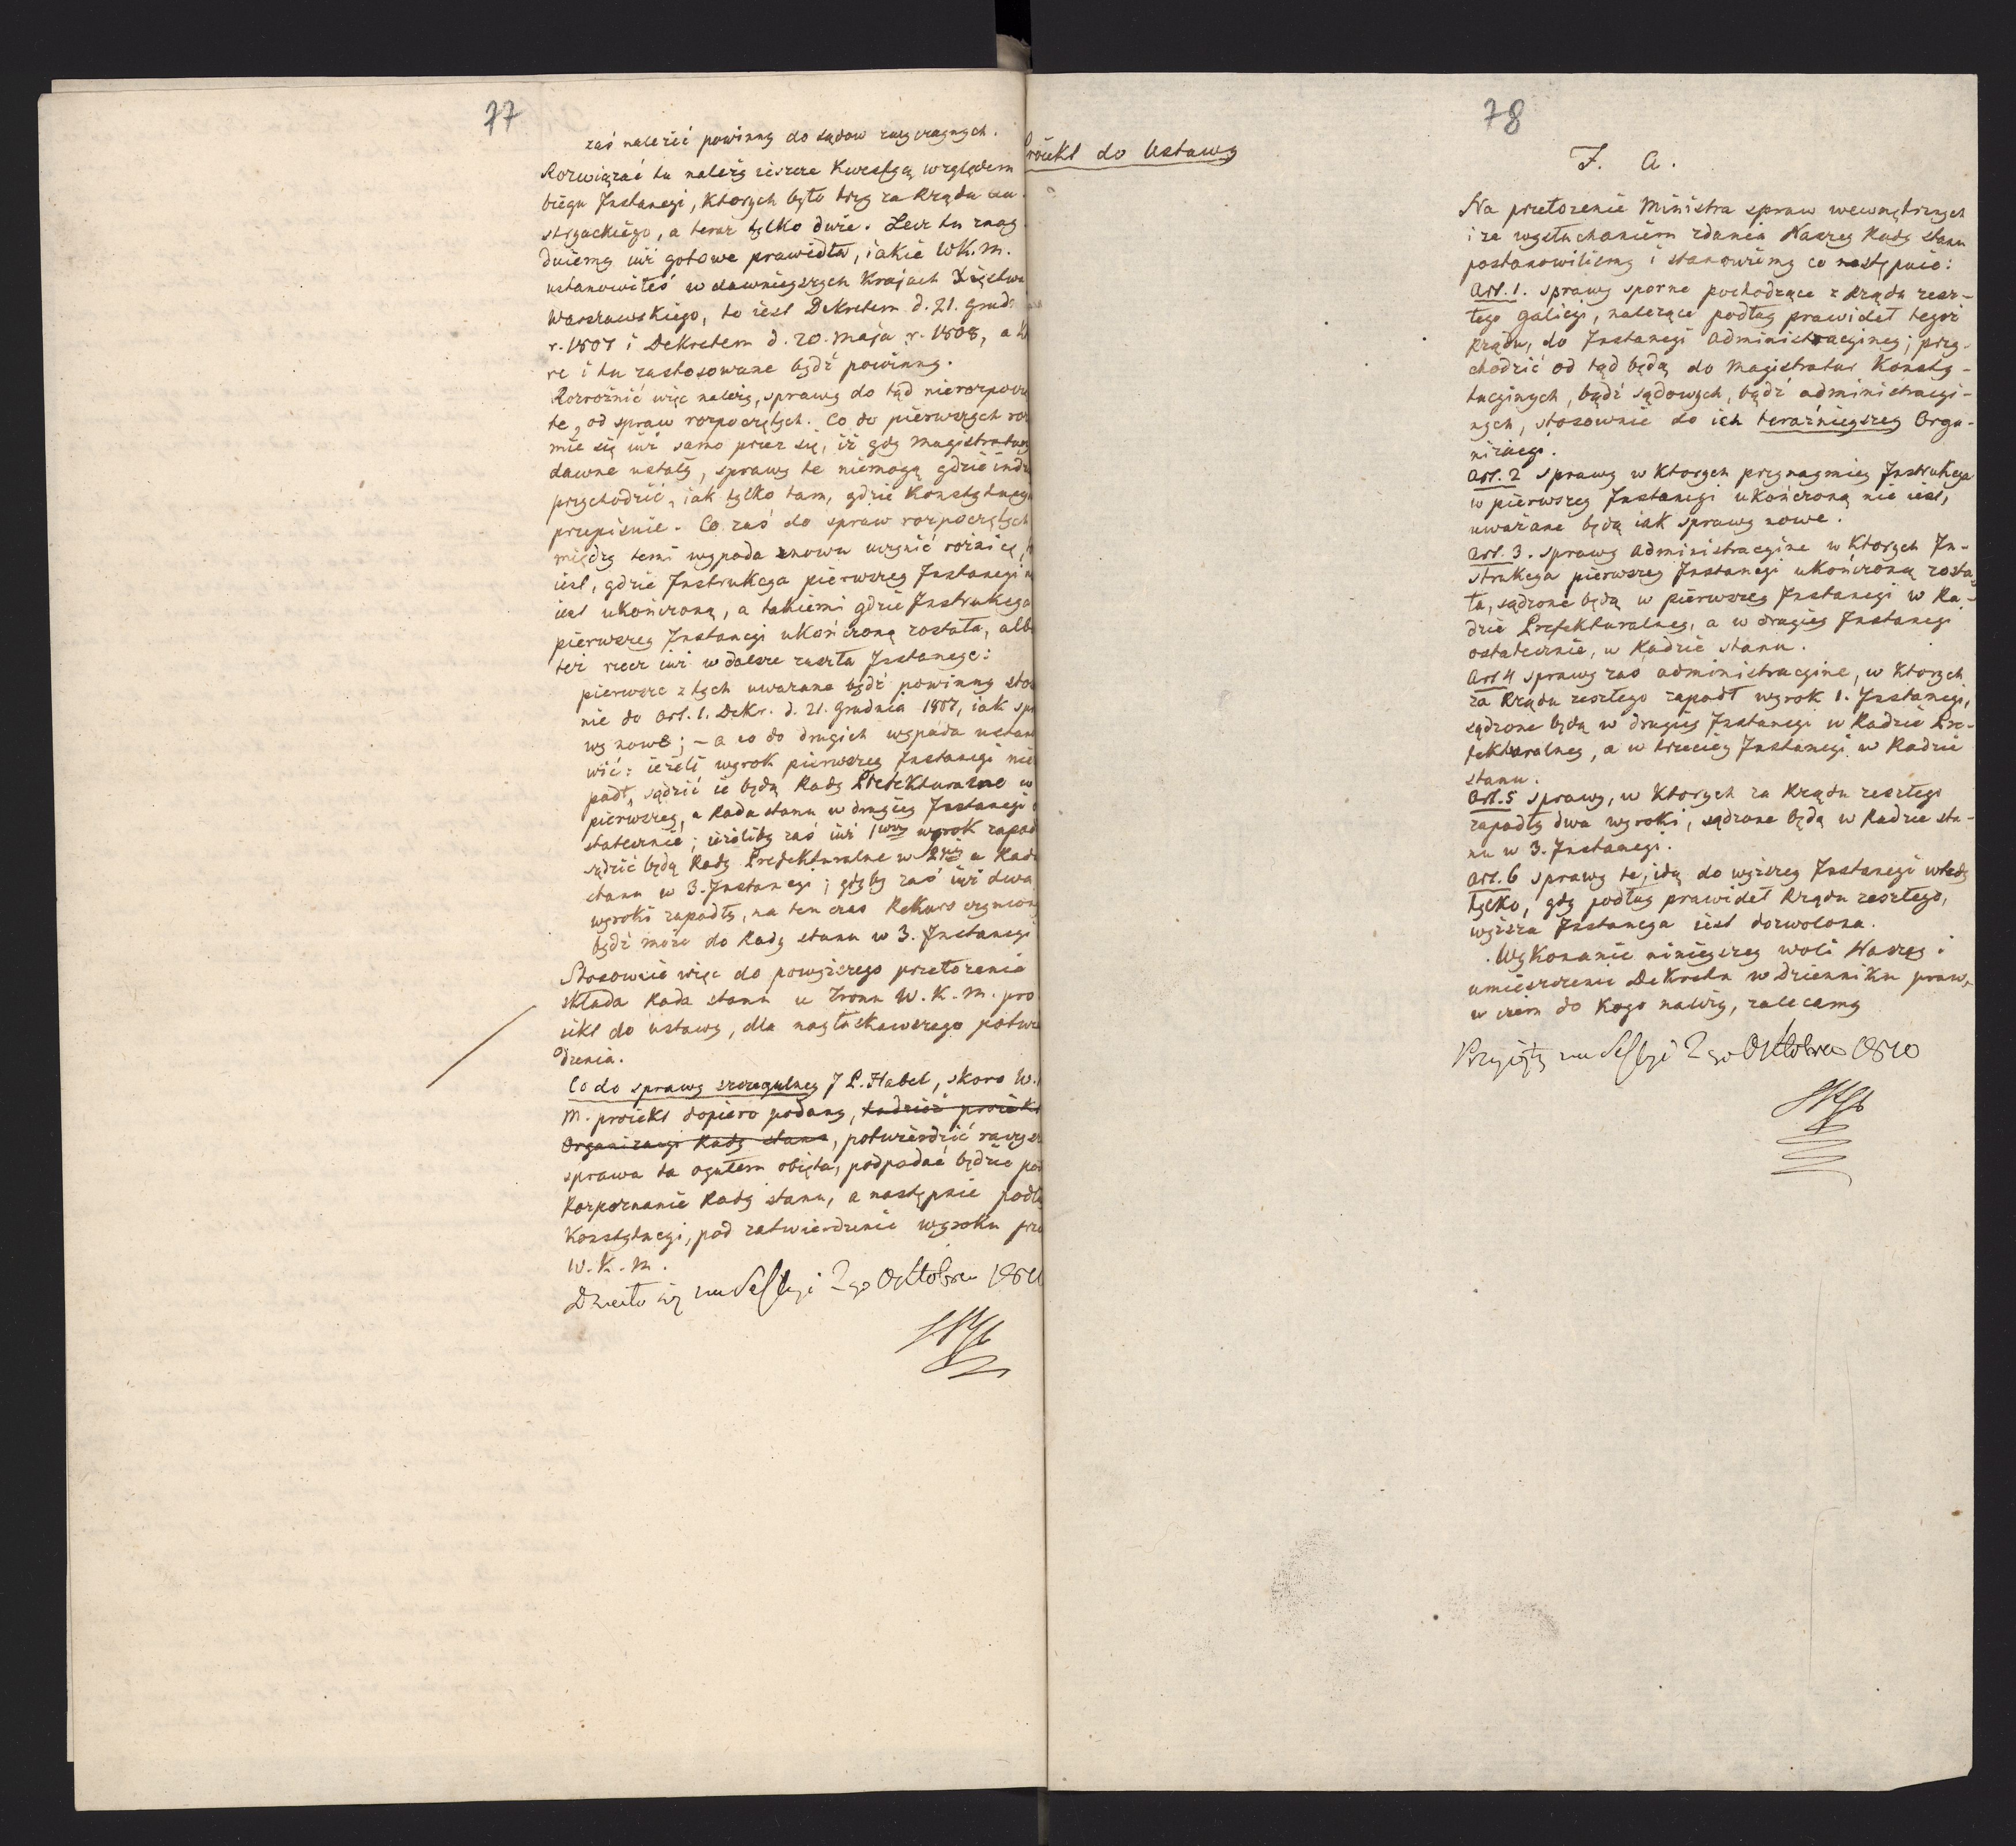 77
zaś należeć powinny do sądow zwyczaynych.
Rozwiązać tu należy ieszcze Kwestyą względem
biegu Instancyi, Ktorych było trzy za Rządu au-
stryackiego, a teraz tylko dwie. Lecz tu znay
duiemy iuż gotowe prawidła, iakie WK.M.
ustanowiłeś w dawnieyszych Krajach Xięstwa
Warszawskiego, to iest Dekretem d. 21. Grud:
r. 1807 i Dekretem d. 20. Maja r. 1808, a
re i tu zastosowane bydź powinny.
Rozrożnić więc należy, sprawy do tąd nierozpoczę
te, od spraw rozpoczętych. Co do pierwszych roz
mie się iuż samo przez się, iż gdy Magistratury
dawne ustały, sprawy te niemogą gdzie indz
przychodzić, iak tylko tam, gdzie Konstytucya
przepisuie. Co zaś do spraw rozpoczętych
między temi wypada znowu uczynić rożnicę,
iest, gdzie Instrukcya pierwszey Instancyi n
iest ukończoną, a takiemi gdzie Instrukcya
pierwszey Instancyi ukończoną została, alb
też rzecz iuż w dalsze zaszła Instancye:
pierwsze z tych uważane bydź powinny stos
nie do Art. 1. Dekr. d. 21. Grudnia 1807, iak spr
wy nowe; – a co do drugich wypada ustan
wić: ieżeli wyrok pierwszey Instancyi nie
padł, sądzić ie będą Rady Prefekturalne w
pierwszey, a Rada stanu w drugiey Instancyi o
statecznie; ieżeliby zaś iuż 1wszy wyrok zapad
sądzić będą Rady Prefekturalne w 2giey a Rada
stanu w 3. Instancyi; gdyby zaś iuż dwa
wyroki zapadły, na ten czas Rekurs czyniony
bydź może do Rady stanu w 3. Instancyi
Stosownie więc do powyższego przełożenia
składa Rada stanu u Tronu W.K.M. pro
iekt do ustawy, dla nayłaskawszego potwier
dzenia.
Co do sprawy szczegulney J P. Habel, skoro W.
M. proiekt dopiero podany, tudzież proiekt
Organizacyi Rady stanu, potwierdzić raczysz
sprawa ta ogułem obięta, podpadać będzie pod
Rozpoznanie Rady stanu, a następnie podłu
Konstytucyi, pod zatwierdzenie wyroku prze
W.K.M.
Działo się na Sessyi 2go Oktobra 1810
78
Proiekt do Ustawy
F. A.
Na przełożenie Ministra spraw wewnętrznych
i za wysłuchaniem zdania Naszey Rady stanu
postanowiliśmy i stanowimy co następuie:
Art. 1. Sprawy sporne pochodzące z Rządu zesz-
łego Galicyi, należące podług prawideł tegoż
Rządu, do Instancyi Administracyiney; przy-
chodzić od tąd będą do Magistratur Konsty-
tucyinych, bądź sądowych, bądź administracyi-
nych, stosownie do ich teraźnieyszey Orga-
nizacyi.
Art. 2 Sprawy w Ktorych przynaymiey Instrukcya
w pierwszey Instancyi ukończoną nie iest,
uważane będą iak sprawy nowe.
Art. 3. Sprawy administracyine w Ktorych In-
strukcya pierwszey Instancyi ukończoną zosta-
ła, sądzone będą w pierwszey Instancyi w Ra-
dzie Prefekturalney, a w drugiey Instancyi
ostatecznie, w Radzie stanu.
Art 4 Sprawy zaś administracyine, w Ktorych
za Rządu zeszłego zapadł wyrok 1. Instancyi,
sądzone będą w drugiey Instancyi w Radzie Pre-
fekturalney, a w trzeciey Instancyi w Radzie
stanu.
Art. 5 Sprawy, w Ktorych za Rządu zeszłego
zapadły dwa wyroki, sądzone będą w Radzie sta-
nu w 3. Instancyi.
Art. 6 Sprawy te, idą do wyższey Instancyi wtedy
tylko, gdy podług prawideł Rządu zeszłego,
wyższa Instancya iest dozwolona.
Wykonanie ninieyszey woli Naszey i
umieszczenie Dekretu w Dzienniku praw,
w czem do Kogo należy, zalecamy
Przyięty na Sessyi 2go Oktobra 1810